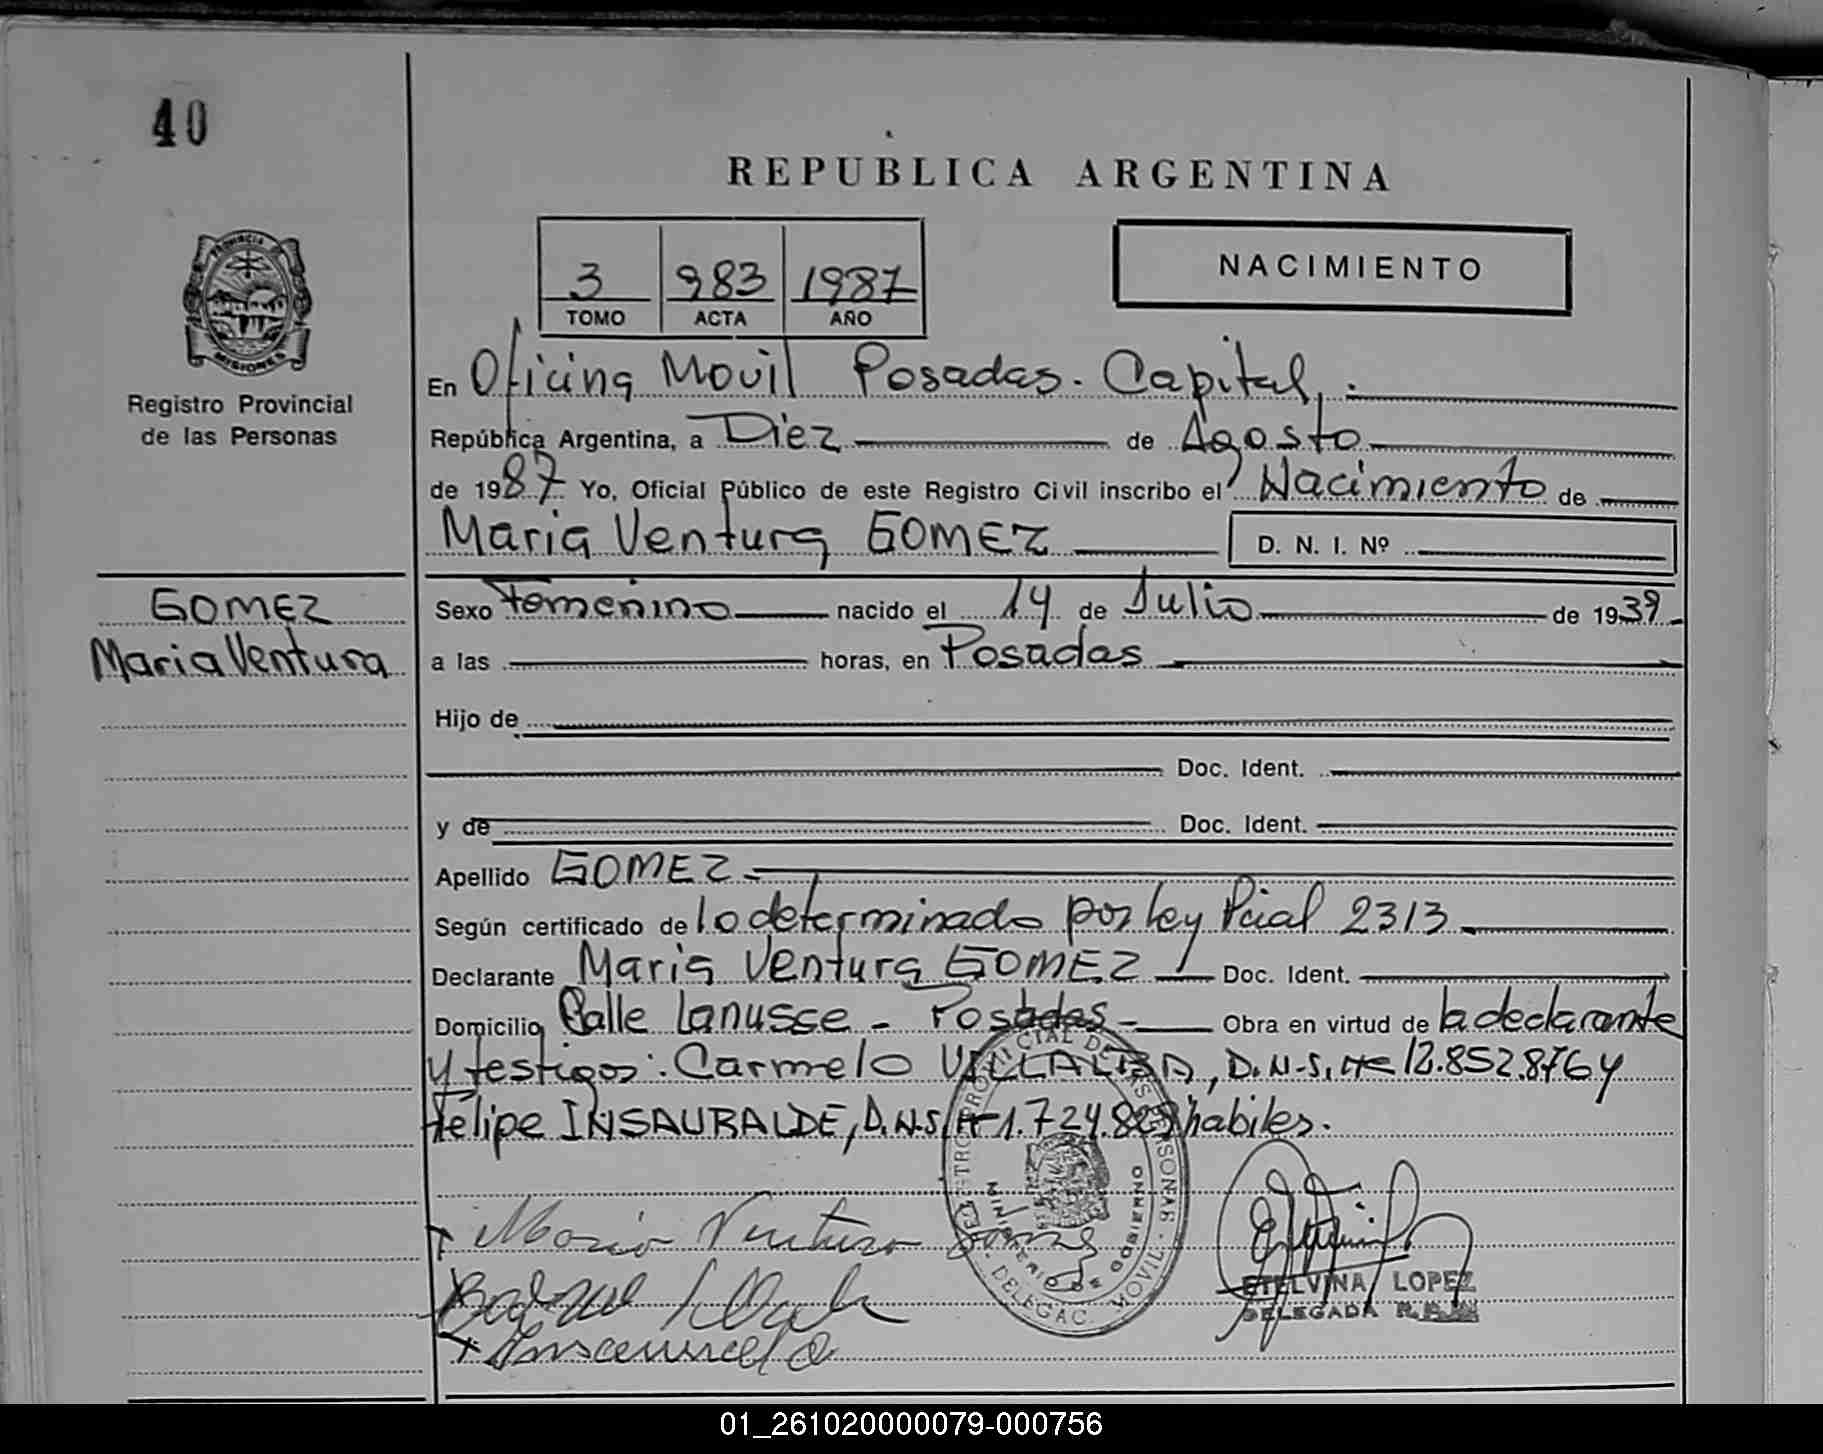 40
REPUBLICA ARGENTINA
3 983 1987
TOMO ACTA AÑO
NACIMIENTO
PROVINCIA DE
MISIONES
Registro Provincial
de las Personas
En Oficina Movil Posadas. Capital,
República Argentina, a Diez de Agosto
de 1987 Yo, Oficial Público de este Registro Civil inscribo el Nacimiento de
Maria Ventura GOMEZ D. N. I. Nº
GOMEZ
Maria Ventura
Sexo Femenino nacido el 14 de Julio de 1939
a las horas, en Posadas
Hijo de
Doc. Ident.
y de Doc. Ident.
Apellido GOMEZ
Según certificado de lo determinado por ley Pcial 2313
Declarante Maria Ventura GOMEZ Doc. Ident.
Domicilio Calle Lanusse - Posadas - Obra en virtud de la declarante
y testigos: Carmelo VILLALBA, D.N.I. Nº 12.852.876 y
Felipe INSAURALDE, D.N.I. Nº 1.724.829 habiles.
REGISTRO PROVINCIAL DE LAS PERSONAS
MINISTERIO DE GOBIERNO
DELEGAC. MOVIL
Maria Ventura Gomez
ETELVINA LOPEZ
DELEGADA
01_261020000079-000756